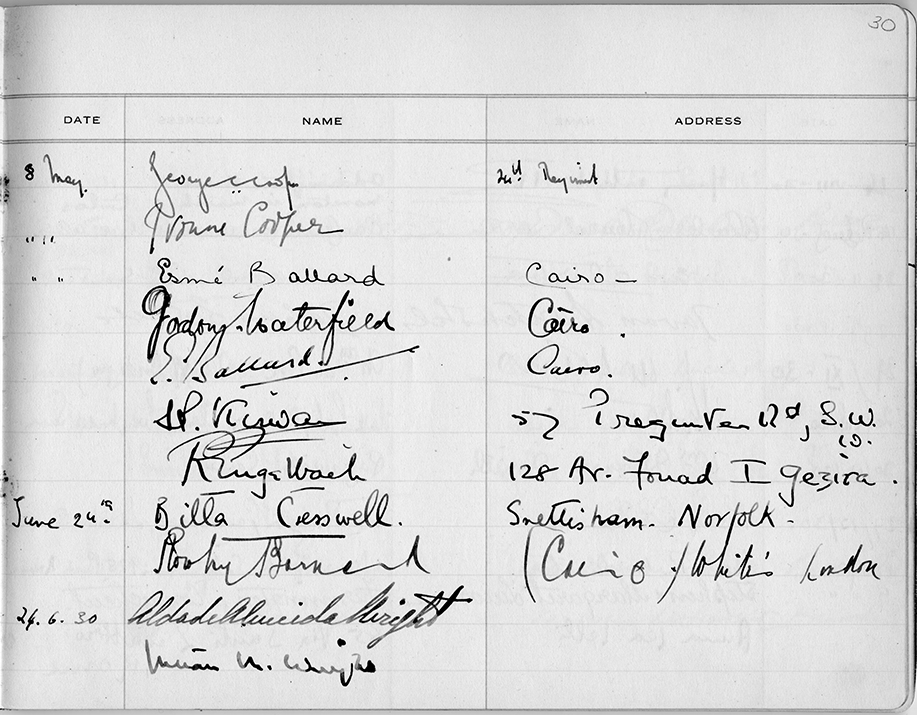 30
DATE NAME ADDRESS
8 May. George Coop 24th Regiment
" " Yvonne Cooper
" " Esmé Ballard Cairo —
Waterfield Cairo.
E. Ballard. Cairo.
H. Kirwan 57 Tregunter Rd, S.W.
10.
128 Av. Fouad I Gezira.
June 24th. Billa Cresswell. Snettisham. Norfolk.
Barnard (Cairo) White's London
24.6.30 Alda de Almeida Wright
M. Wright